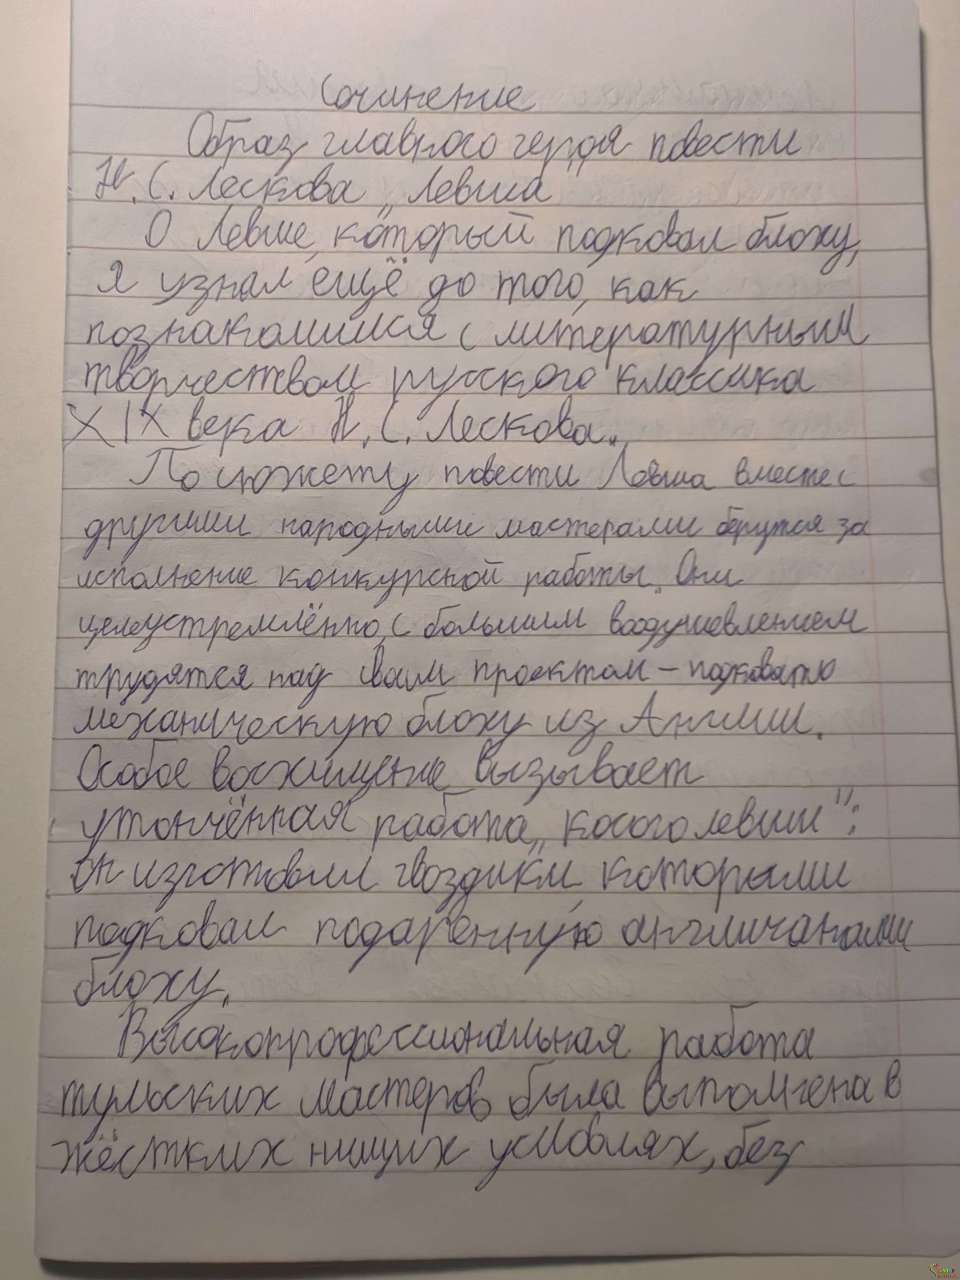 Сочинение
Образ главного героя повести
Н. С. Лескова „Левша"
О Левше, который подковал блоху,
я узнал ещё до того, как
познакомился с литературным
творчеством русского классика
XIX века Н. С. Лескова.
По сюжету повести Левша вместе с
другими народными мастерами берутся за
исполнение конкурсной работы. Они
целеустремлённо, с большим воодушевлением
трудятся над своим проектом – подковать
механическую блоху из Англии.
Особое восхищение вызывает
утончённая работа „косого левши":
он изготовил гвоздики, которыми
подковали подаренную англичанами
блоху.
Высокопрофессиональная работа
тульских мастеров была выполнена в
жёстких нищих условиях, без